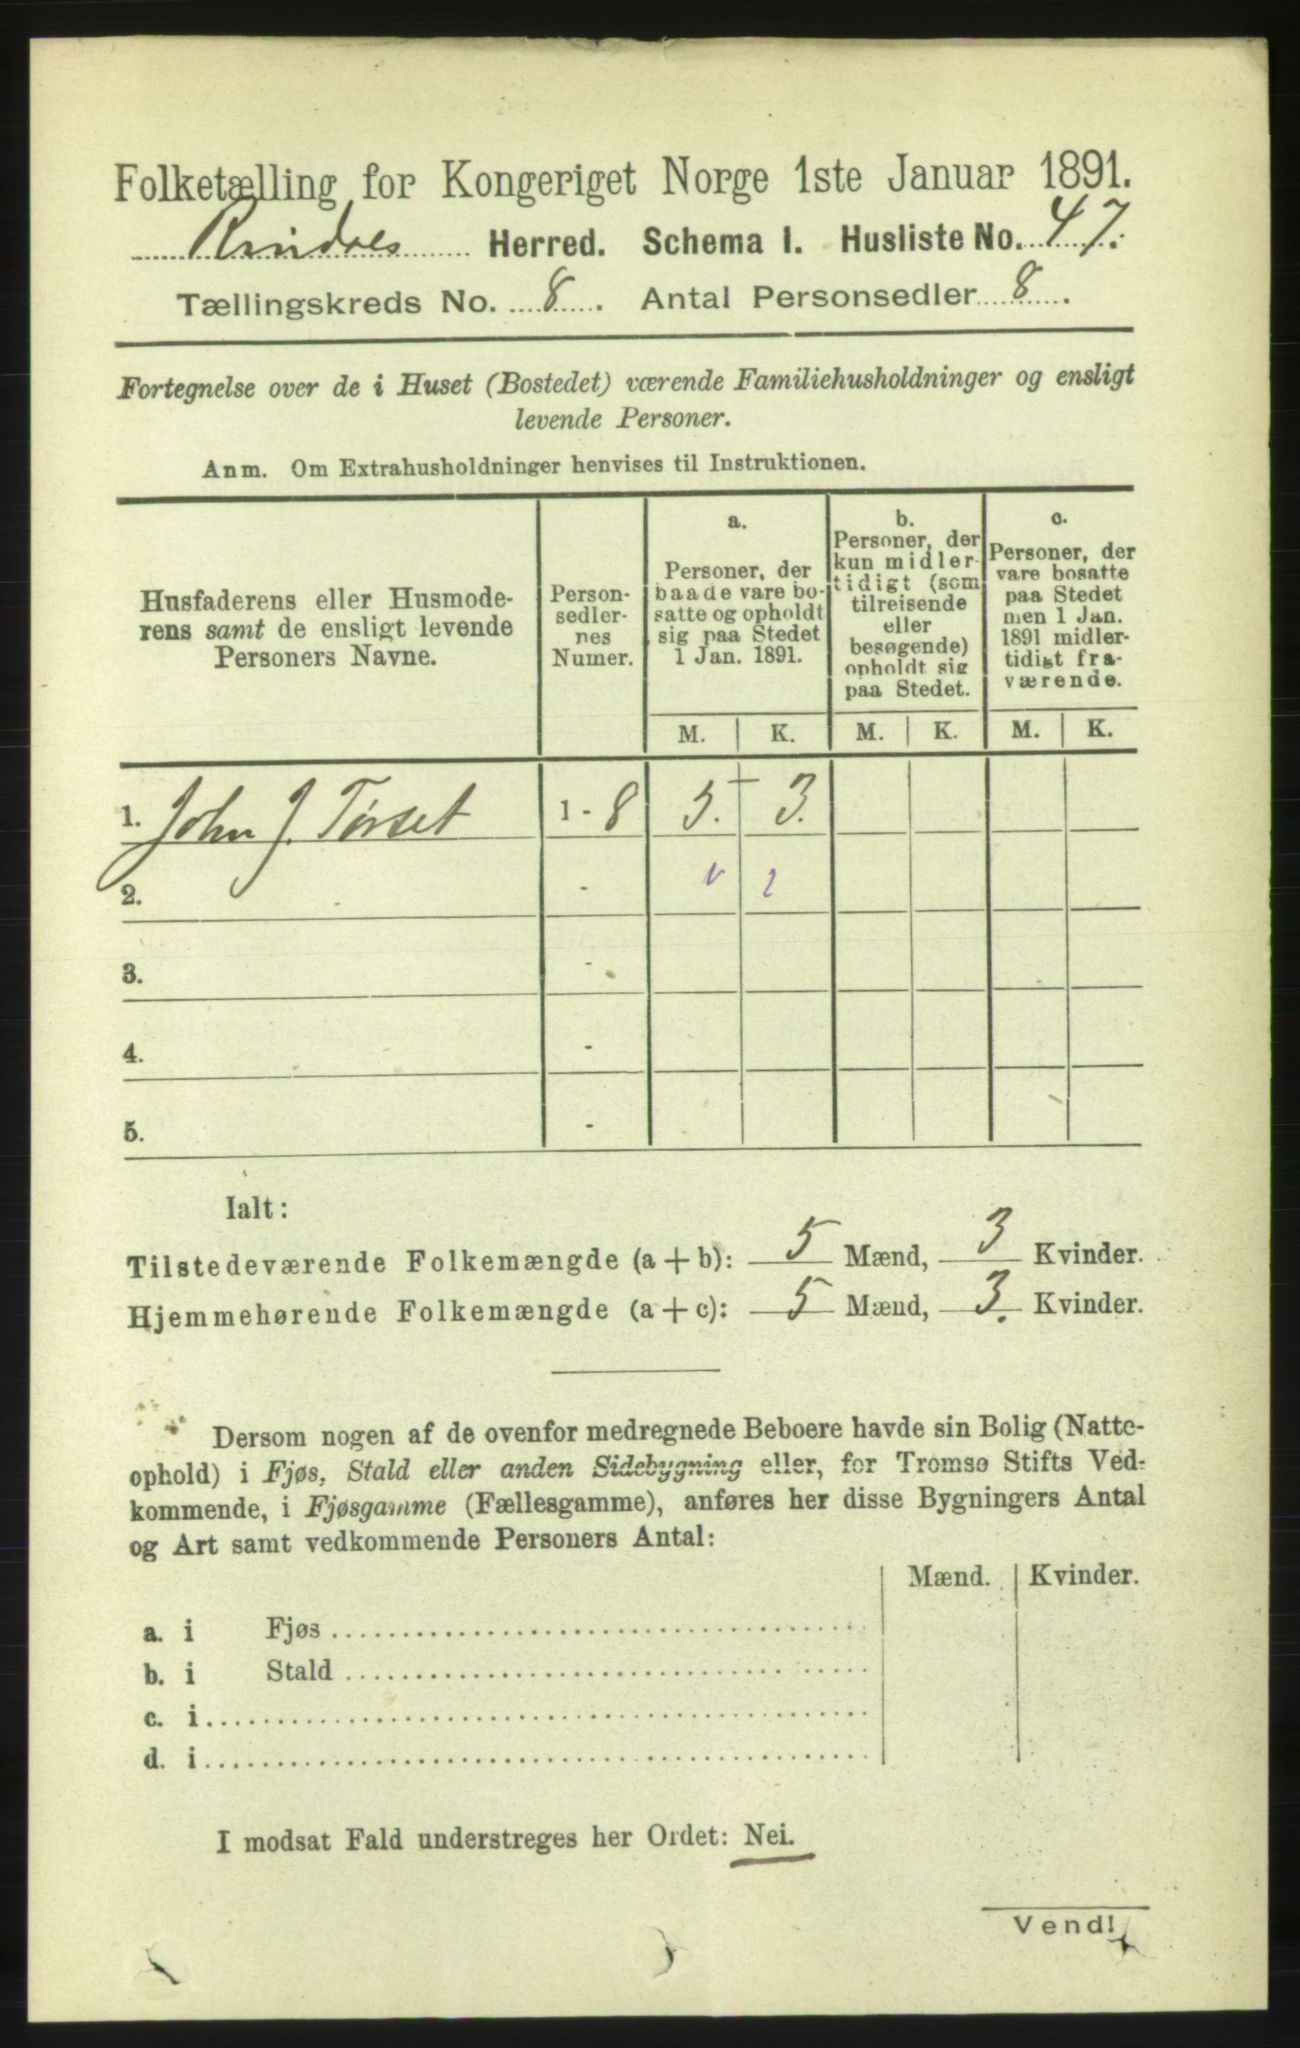 Folketælling for Kongeriget Norge 1ste Januar 1891.
Rindals Herred. Schema I. Husliste No. 47.
Tællingskreds No. 8. Antal Personsedler 8.
Fortegnelse over de i Huset (Bostedet) værende Familiehusholdninger og ensligt
levende Personer.
Anm. Om Extrahusholdninger henvises til Instruktionen.
Husfaderens eller Husmode-
rens samt de ensligt levende
Personers Navne.
Person-
sedler-
nes
Numer.
a.
Personer, der
baade vare bo-
satte og opholdt
sig paa Stedet
1 Jan. 1891.
b.
Personer, der
kun midler-
tidigt (som
tilreisende
eller
besøgende)
opholdt sig
paa Stedet.
c.
Personer, der
vare bosatte
paa Stedet
men 1 Jan.
1891 midler-
tidigt fra-
værende.
M. K. M. K. M. K.
1. John J. Tørset 1 - 8 5. 3.
2. - v 2
3. -
4. -
5. -
Ialt:
Tilstedeværende Folkemængde (a + b): 5 Mænd, 3 Kvinder.
Hjemmehørende Folkemængde (a + c): 5 Mænd, 3. Kvinder.
Dersom nogen af de ovenfor medregnede Beboere havde sin Bolig (Natte-
ophold) i Fjøs, Stald eller anden Sidebygning eller, for Tromsø Stifts Ved-
kommende, i Fjøsgamme (Fællesgamme), anføres her disse Bygningers Antal
og Art samt vedkommende Personers Antal:
Mænd. Kvinder.
a. i Fjøs
b. i Stald
c. i
d. i
I modsat Fald understreges her Ordet: Nei.
Vend!